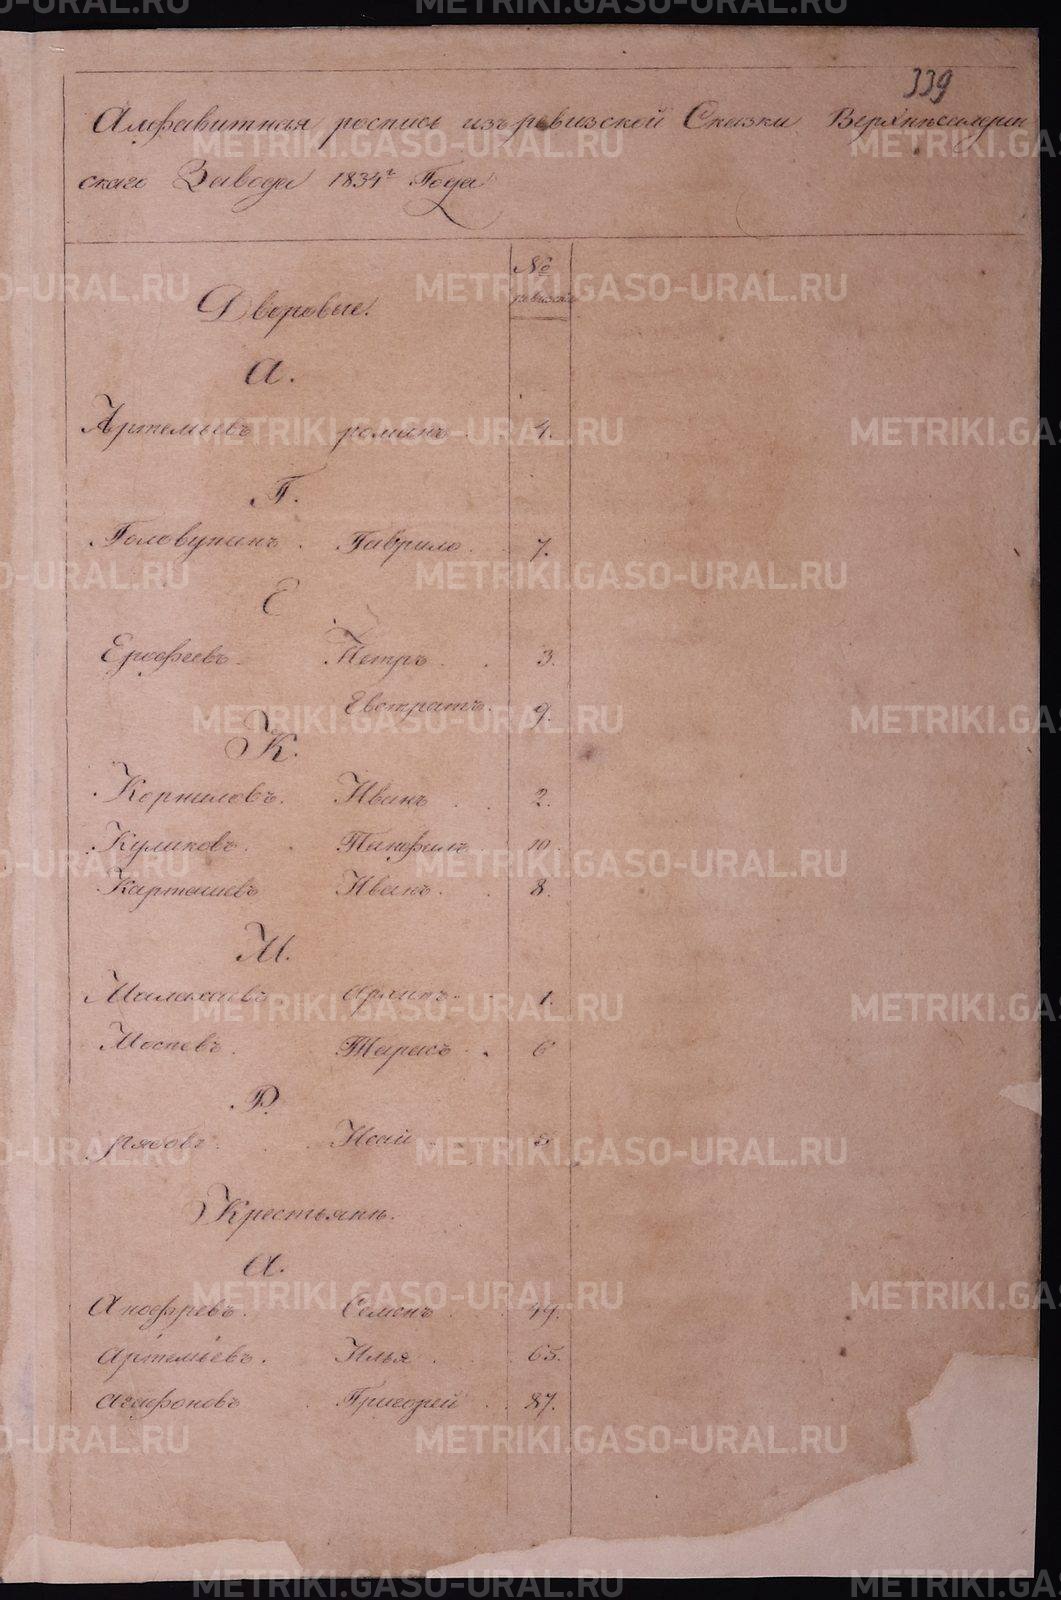 339
Алфавитная роспись изъ ревизской Сказки
скаго Завода 1834г Года
№
ревизской
Дворовые.
А.
Артемьевъ романъ. 4.
Г.
Гаврило. 7.
Е
Ерофеевъ. Петръ. 3.
Евстратъ. 9.
К.
Корниловъ. Иванъ 2.
Куликовъ. Панфилъ 10.
Карташевъ Иванъ. 8.
М.
Малаховъ Архипъ. 1.
Мосеевъ. Тарасъ 6
Р.
рябовъ. Исай 5
Крестьяне.
А.
Анофревъ. Семенъ 49.
Артемьевъ. Илья 65.
агафоновъ Григорей 87.
METRIKI.GASO-URAL.RU